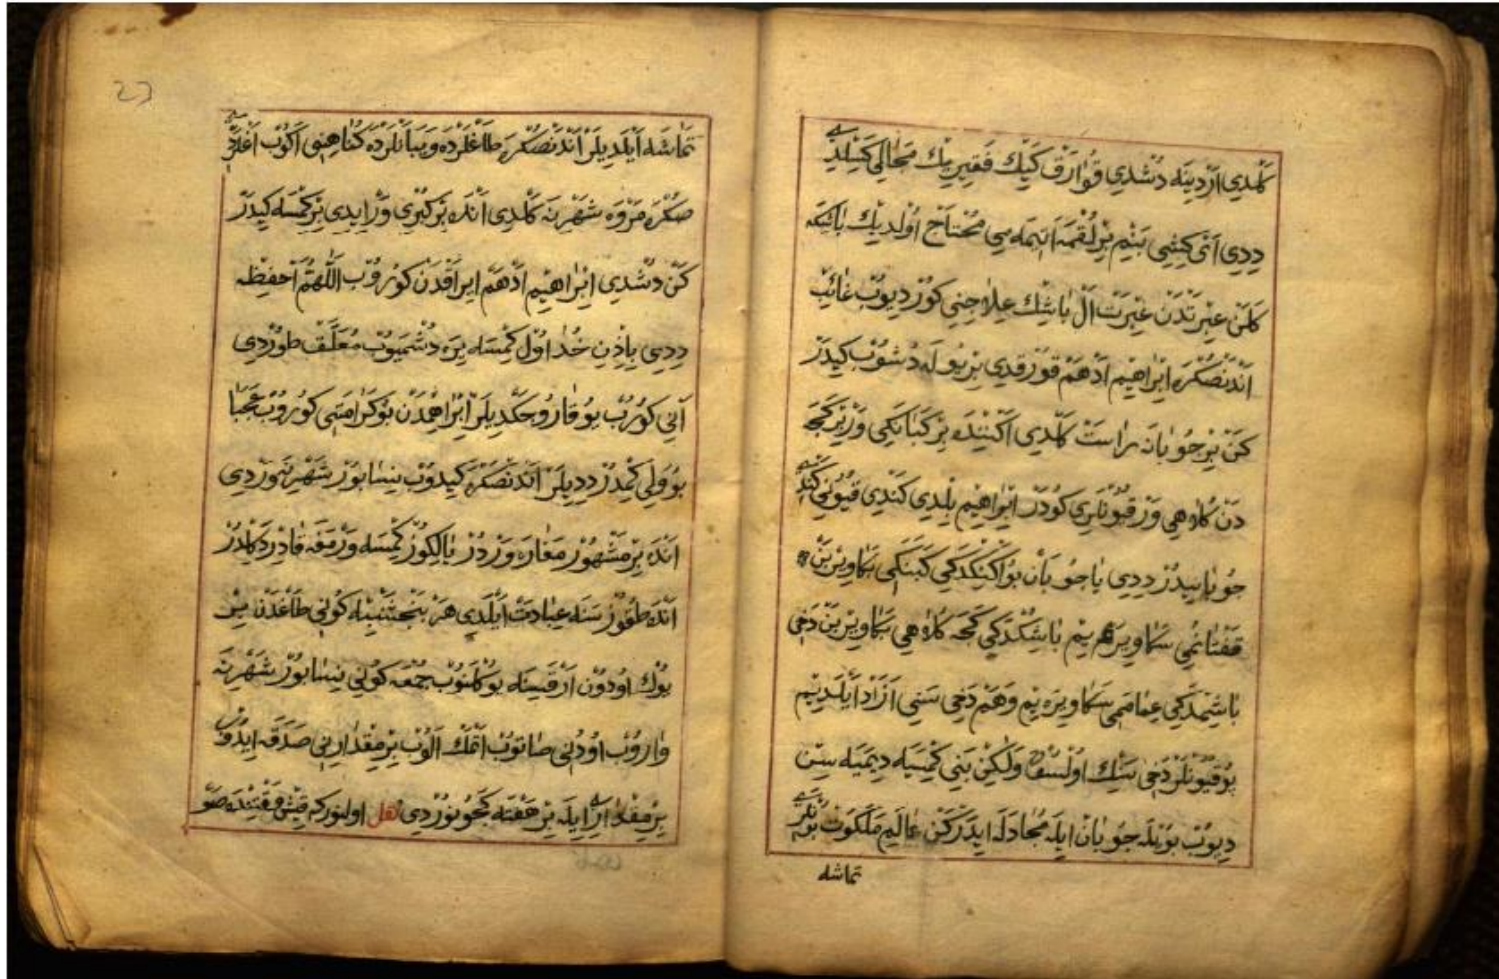 كلدي اردينه دشدي قوارق كيك فقيريك مجالي كسلدي
ددي آني كيشي بنيم بر لقمه اتيمه مي محتاج اولديك باشكه
كلن عبرتدن عبرت آل باشك علاجني كور ديوب غائب
اندنصكره ابراهيم ادهم قورقدي بر يوله دشوب كيدر
كن بر جوبانه راست كلدي اكننده بر كبانكي وار بر كجه
دن كلاهي وار قيونلري كودر ابراهيم بلدي كندي قيوني كندي
جوبانيدر ددي يا جوبان بو اكنكدكي كبنكي بكا وير بن
قفتانمي سكا ويرهيم باشكدكي كجه كلاهي بكا وير بن دخي
باشمدكي عمامهمي سكا ويرهيم وهم دخي سني ازاد ايلديم
بو قيونلر دخي سنك اولسون ولكن بني كمسيه ديميه سن
ديوب بونله جوبان ايله مجادله ايدركن عالم ملكوت بونلري
تماشه
23
تماشه ايلديلر اندنصكره طاغلرده ويبانلرده كناهني اكوب اغلردي
صكره مروه شهرنه كلدي انده بر كبري وار ايدي بر كمسه كيدر
كن دشدي ابراهيم ادهم ايراقدن كوروب اللهم احفظه
ددي باذن خدا اول كمسه يره دشميوب معلق طوردي
آني كورب يوقارو جكديلر ابراهيمدن بو كرامتي كوروب عجبا
بو ولي كمدر دديلر اندنصكره كيدوب نيسابور شهرنه وردي
انده بر مشهور مغاره واردر يالكوز كمسه وارمغه قادر دكلدر
انده طقوز سنه عبادت ايلدي هر بنجشنبه كوني طاغدن بر
يوك اودون ارقسنه يوكلنوب جمعه كوني نيسابور شهرنه
واروب اودني صاتوب اتمك الوب بر مقدارني صدقه ايدوب
بر مقداري ايله بر هفته كجونوردي نقل اولنور كه قيش وقتنده صو